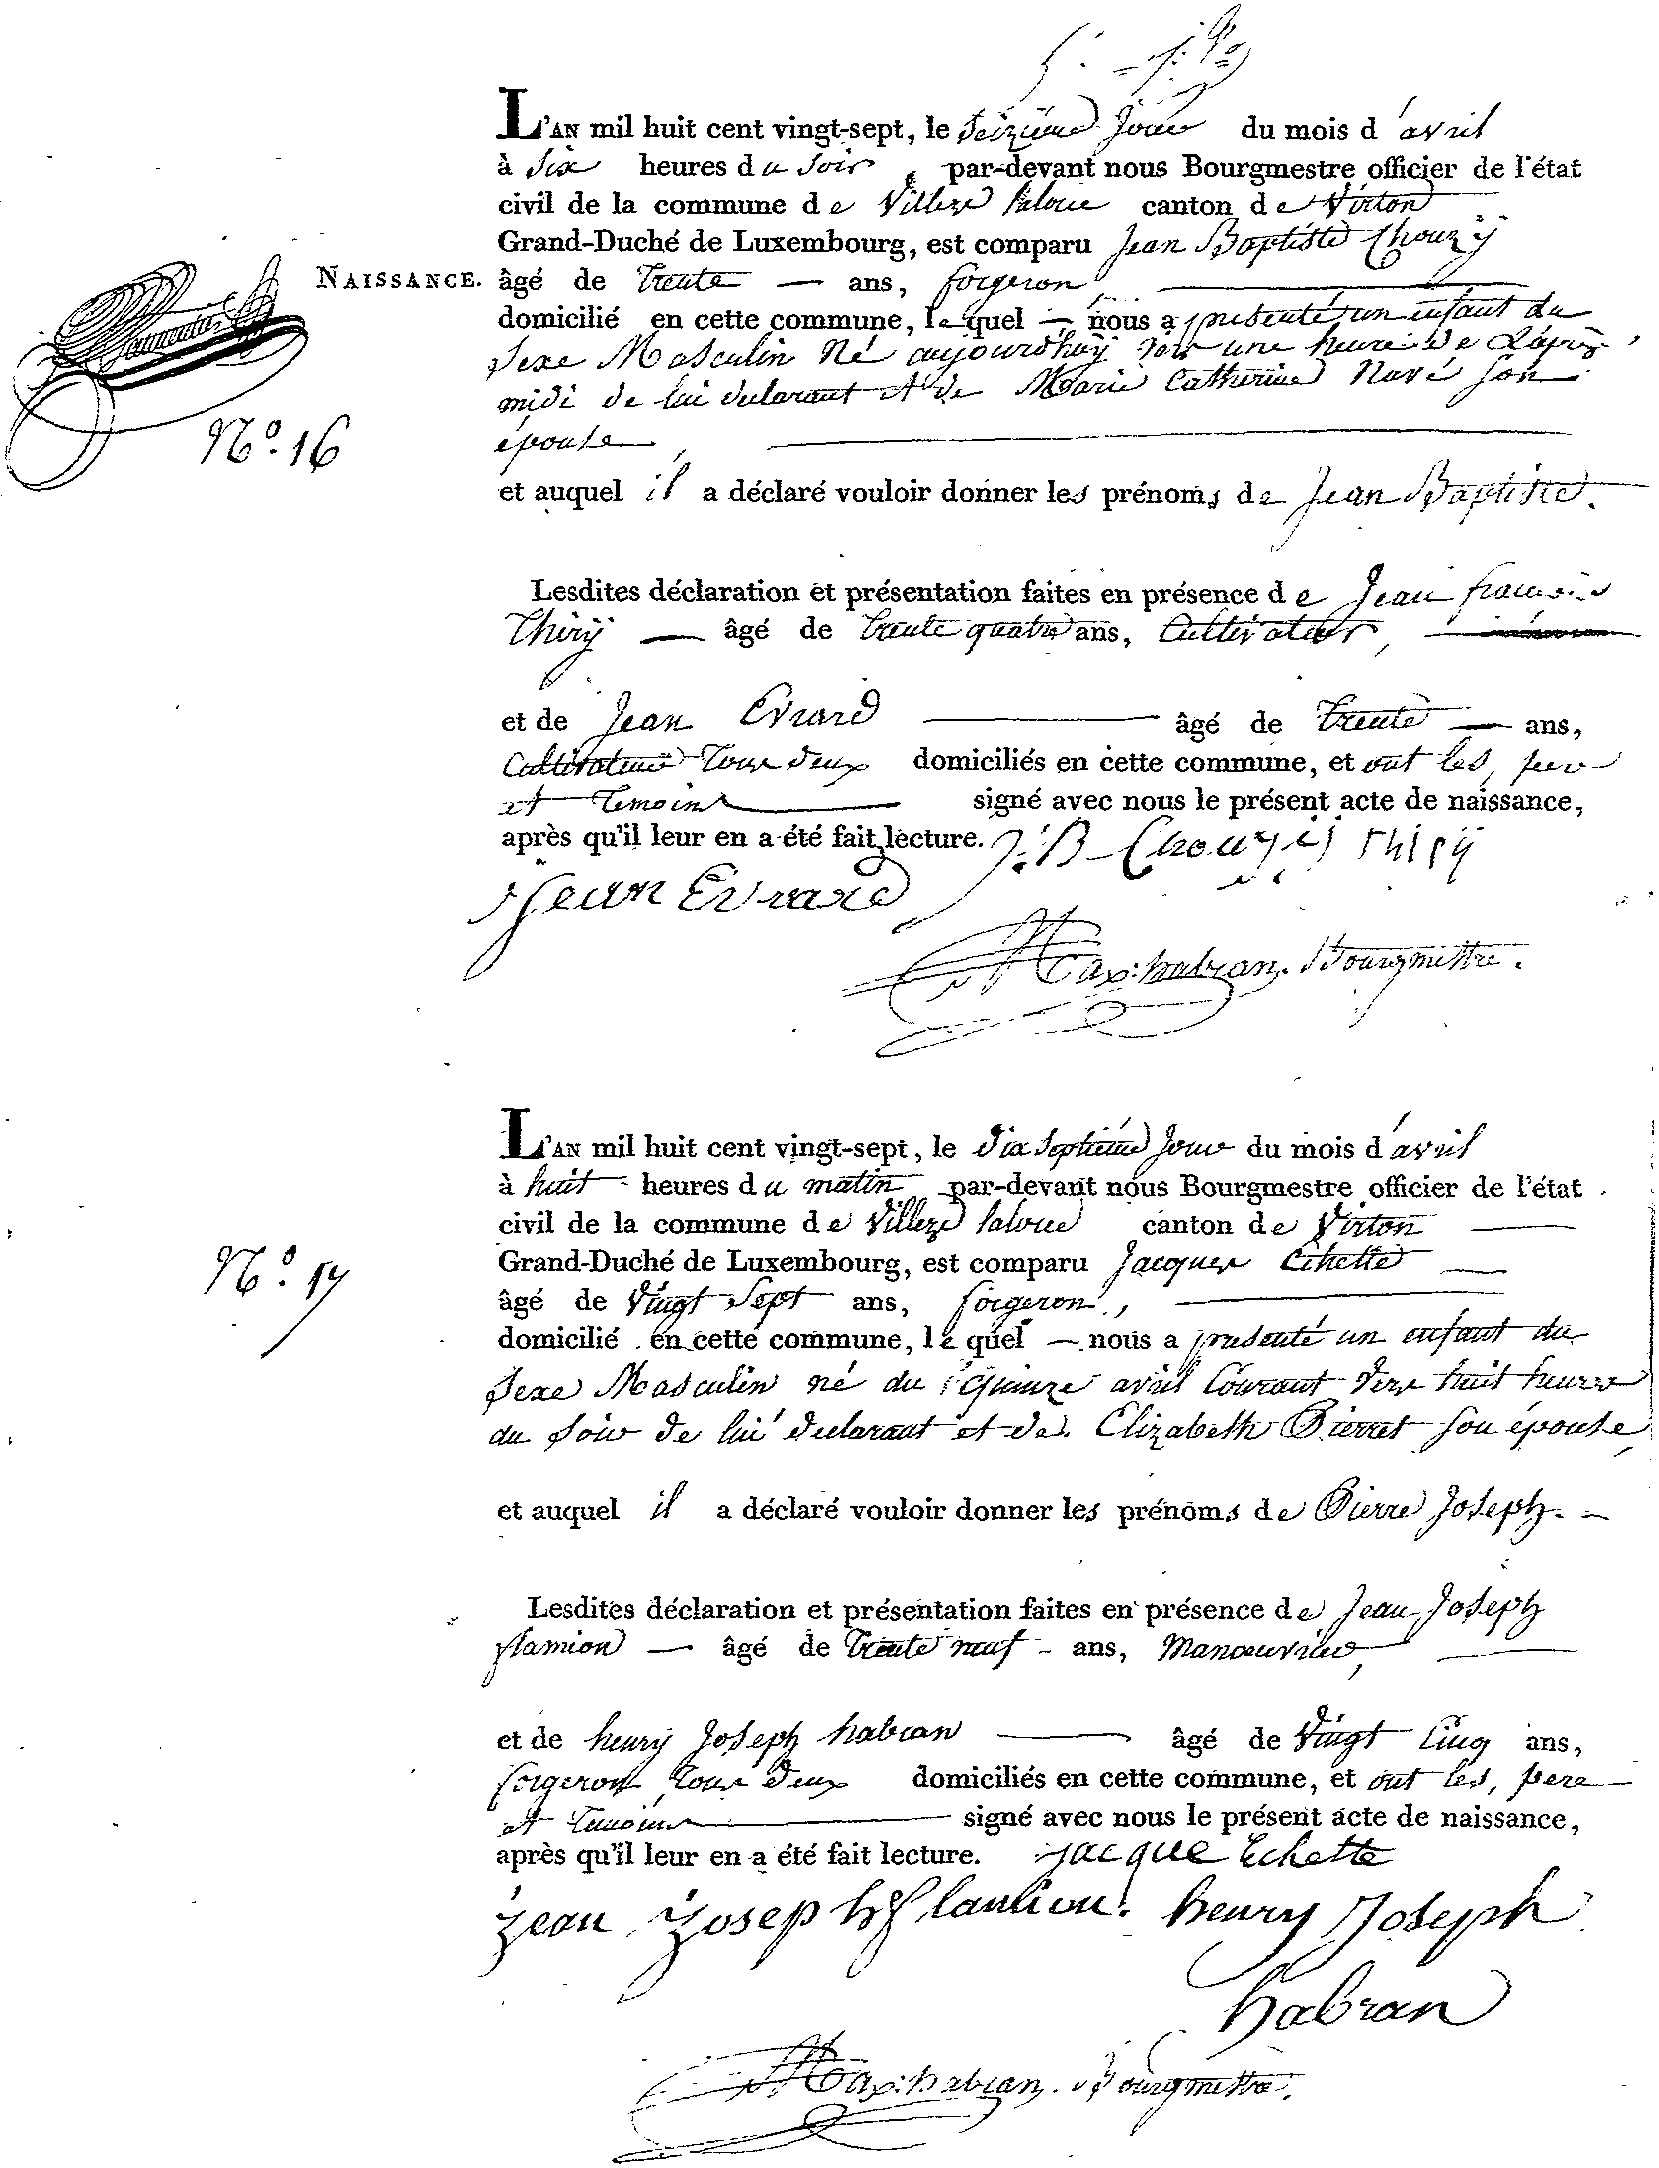 L'AN mil huit cent vingt-sept, le Seizieme Jour du mois d'avril
à six heures du soir, par-devant nous Bourgmestre officier de l'état
civil de la commune de Villers laloue canton de Virton
NAISSANCE.
Grand-Duché de Luxembourg, est comparu Jean Baptiste Chouzÿ
âgé de trente — ans, forgeron
domicilié en cette commune, lequel — nous a presenté un enfant du
Sexe Masculin né aujourd'huÿ vers une heure de L'après
midi de lui declarant et de Marie Catherine Navé son
épouse,
N.° 16
et auquel il a déclaré vouloir donner les prénoms de Jean Baptiste.
Lesdites déclaration et présentation faites en présence de Jean françois
Thirÿ — âgé de trente quatre ans, Cultivateur,
et de Jean Evrard — âgé de trente — ans,
Cultivateur tous deux domiciliés en cette commune, et ont les, pere
et temoins signé avec nous le présent acte de naissance,
après qu'il leur en a été fait lecture. J. B Chouzÿ thirÿ
Jean Evrard
Max: habran. Bourgmettre.
L'AN mil huit cent vingt-sept, le dix septieme Jour du mois d'avril
à huit heures du matin par-devant nous Bourgmestre officier de l'état
civil de la commune de Villers laloue canton de Virton
N.° 17
Grand-Duché de Luxembourg, est comparu Jacques Echette
âgé de Vingt Sept ans, forgeron,
domicilié en cette commune, lequel — nous a presenté un enfant du
Sexe Masculin né du quinze avril Courant vers huit heures
du soir de lui declarant et de Elizabeth Pierret son épouse,
et auquel il a déclaré vouloir donner les prénoms de Pierre Joseph. —
Lesdites déclaration et présentation faites en présence de Jean Joseph
flamion — âgé de trente neuf - ans, Manœuvrier,
et de henrÿ Joseph habran — âgé de Vingt Cinq ans,
forgeron, tous deux domiciliés en cette commune, et ont les, pere
et temoins signé avec nous le présent acte de naissance,
après qu'il leur en a été fait lecture. jacque Echette
jean joseph flamion. henry Joseph
habran
Max: habran. Bourgmettre.